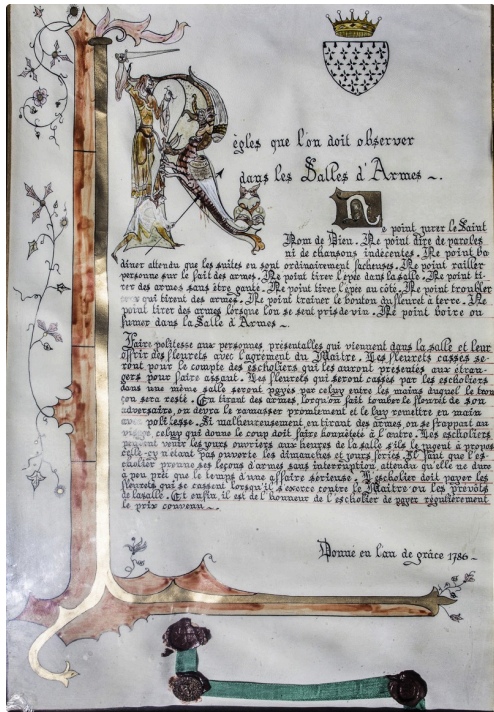 Règles que l'on doit observer
dans les Salles d'Armes ~.
Ne point jurer le Saint
Nom de Dieu. Ne point dire de paroles
ni de chansons indécentes. Ne point ba
diner attendu que les suites en sont ordinairement facheuses. Ne point railler
personne sur le fait des armes. Ne point tirer l'épée dans la salle. Ne point ti-
rer des armes sans être ganté. Ne point tirer l'épée au côté. Ne point troubler
ceux qui tirent des armes. Ne point trainer le bouton du fleuret à terre. Ne
point tirer des armes lorsque l'on se seut pris de vin. Ne point boire ou
fumer dans la Salle d'Armes ~.
Faire politesse aux personnes présentables qui viennent dans la salle et leur
offrir des fleurets avec l'agrément du Maître. Les fleurets cassés se-
ront pour le compte des escholiers qui les auront présentés aux étran-
gers pour faire assaut. Les fleurets qui seront cassés par les escholiers
dans une même salle seront payés par celuy entre les mains duquel le tron
çon sera resté. En tirant des armes, lorqu'on fait tomber le fleuret de son
adversaire, on devra le ramasser promtement et le luy remettre en main
avec politesse. Si malheureusement, en tirant des armes, on se frappait au
visage, celuy qui donne le coup doit faire honnêteté à l'autre. Les escholiers
peuvent venir les jours ouvriers aux heures de la salle s'ils le jugent à propos
celle-cy n'étant pas ouverte les dimanches et jours fériés. Il faut que l'es-
cholier prenne ses leçons d'armes sans interruption attendu qu'elle ne dure
à peu près que le temps d'une affaire sérieuse. L'escholier doit payer les
fleurets qui se cassent lorsqu'il s'exerce contre le Maître ou les prévôts
de la salle. Et enfin, il est de l'honneur de l'escholier de payer régulièrement
le prix convenu ~.
Donné en l'an de grâce 1786 ~